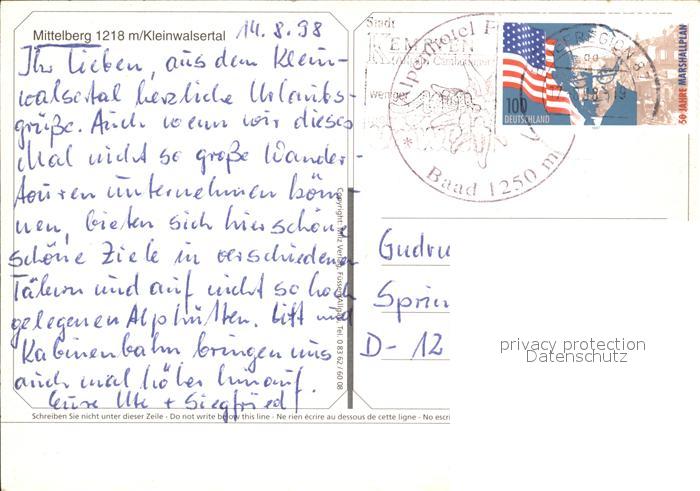 Mittelberg 1218 m/Kleinwalsertal 14.8.98
Ihr Lieben, aus dem Klein-
walsertal herzliche Urlaubs-
grüße. Auch wenn wir dieses
Mal nicht so große Wander-
touren unternehmen kön-
nen, bieten sich hier schöne
schöne Ziele in verschiedenen
Tälern und auf nicht so hoch
gelegenen Alphütten. Lift und
Kabinenbahn bringen uns
auch mal höher hinauf.
Eure Ute + Siegfried
Schreiben Sie nicht unter dieser Zeile - Do not write below this line - Ne rien écrire au dessous de cette ligne - No escri
Tel. 0 83 62 / 60 08
Stadt
KEMPTEN
Alpenhotel
Baad 1250 m
100
DEUTSCHLAND
50 JAHRE MARSHALLPLAN
Gudru
Sprin
D- 12
privacy protection
Datenschutz